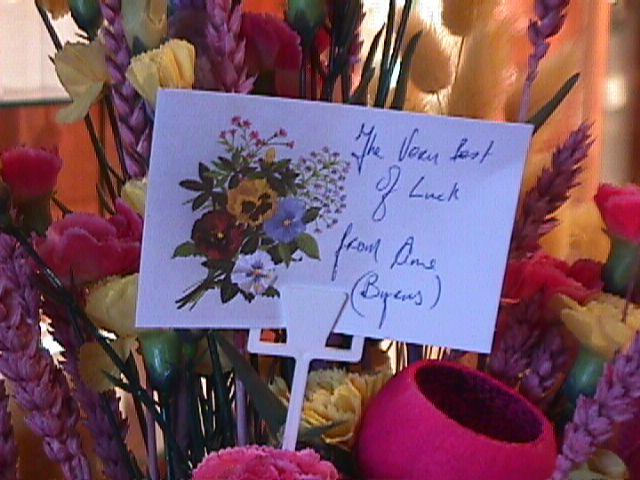 The Very Best
of Luck
from Anne
(Byrens)